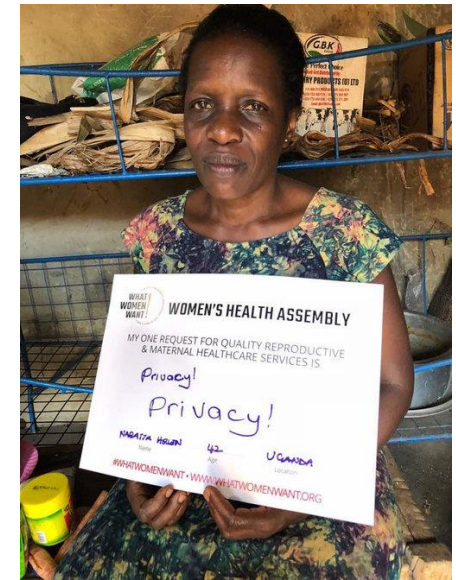 GBK
WHAT
WOMEN
WANT
WOMEN'S HEALTH ASSEMBLY
MY ONE REQUEST FOR QUALITY REPRODUCTIVE
& MATERNAL HEALTHCARE SERVICES IS
Privacy!
Privacy!
HELEN 42 UGANDA
Name Age Location
#WHATWOMENWANT • WWW.WHATWOMENWANT.ORG